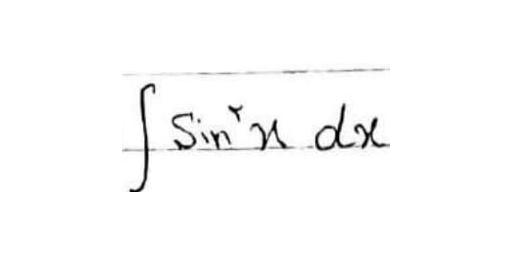 ∫ sin^٢ x dx